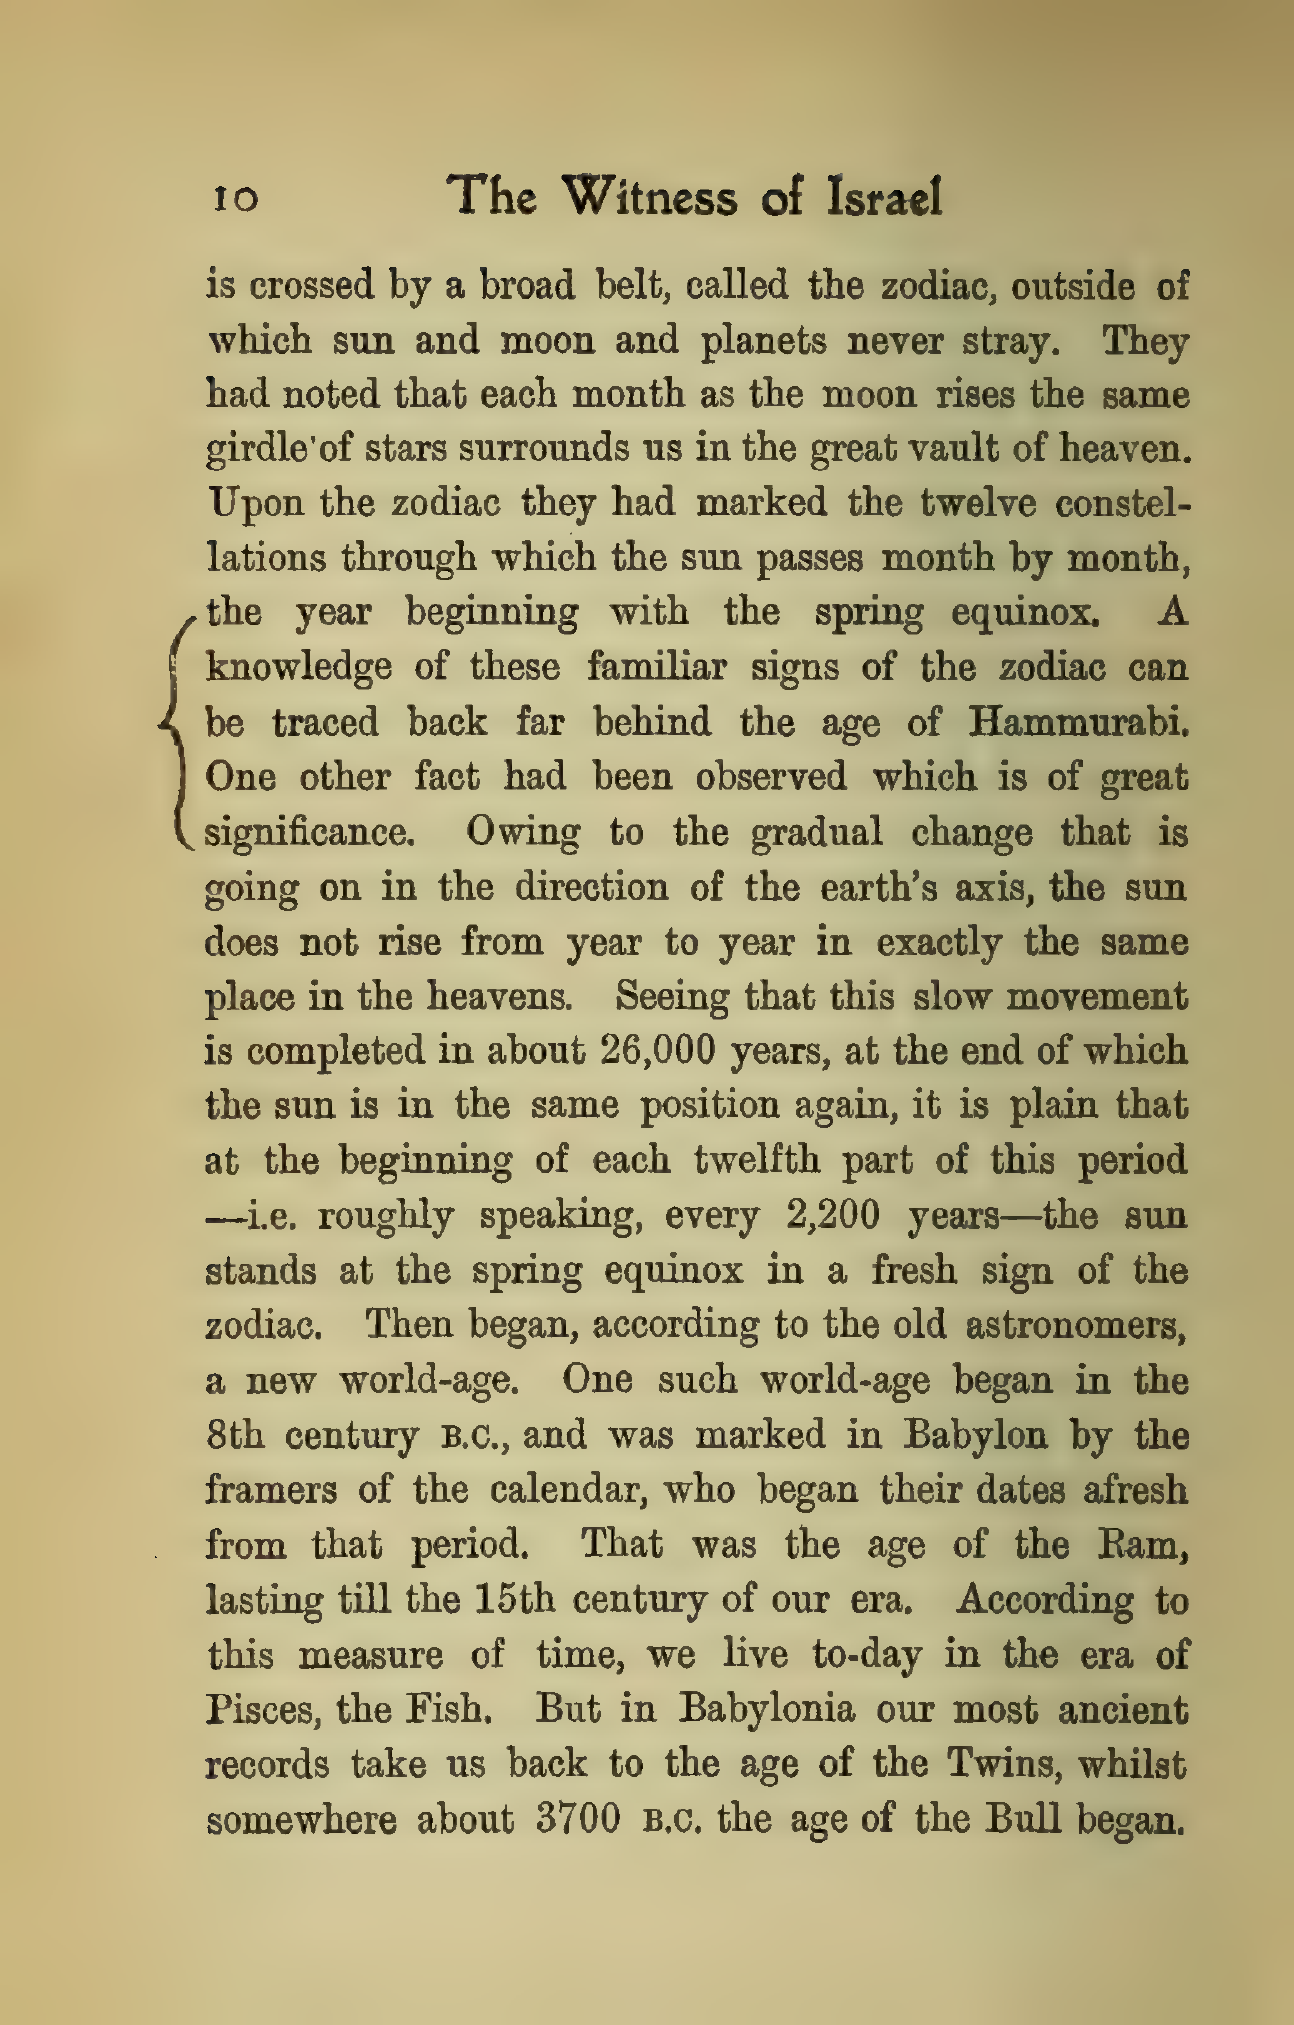 10 The Witness of Israel
is crossed by a broad belt, called the zodiac, outside of
which sun and moon and planets never stray. They
had noted that each month as the moon rises the same
girdle'of stars surrounds us in the great vault of heaven.
Upon the zodiac they had marked the twelve constel-
lations through which the sun passes month by month,
the year beginning with the spring equinox. A
knowledge of these familiar signs of the zodiac can
be traced back far behind the age of Hammurabi.
One other fact had been observed which is of great
significance. Owing to the gradual change that is
going on in the direction of the earth's axis, the sun
does not rise from year to year in exactly the same
place in the heavens. Seeing that this slow movement
is completed in about 26,000 years, at the end of which
the sun is in the same position again, it is plain that
at the beginning of each twelfth part of this period
—i.e. roughly speaking, every 2,200 years—the sun
stands at the spring equinox in a fresh sign of the
zodiac. Then began, according to the old astronomers,
a new world-age. One such world-age began in the
8th century B.C., and was marked in Babylon by the
framers of the calendar, who began their dates afresh
from that period. That was the age of the Ram,
lasting till the 15th century of our era. According to
this measure of time, we live to-day in the era of
Pisces, the Fish. But in Babylonia our most ancient
records take us back to the age of the Twins, whilst
somewhere about 3700 B.C. the age of the Bull began.